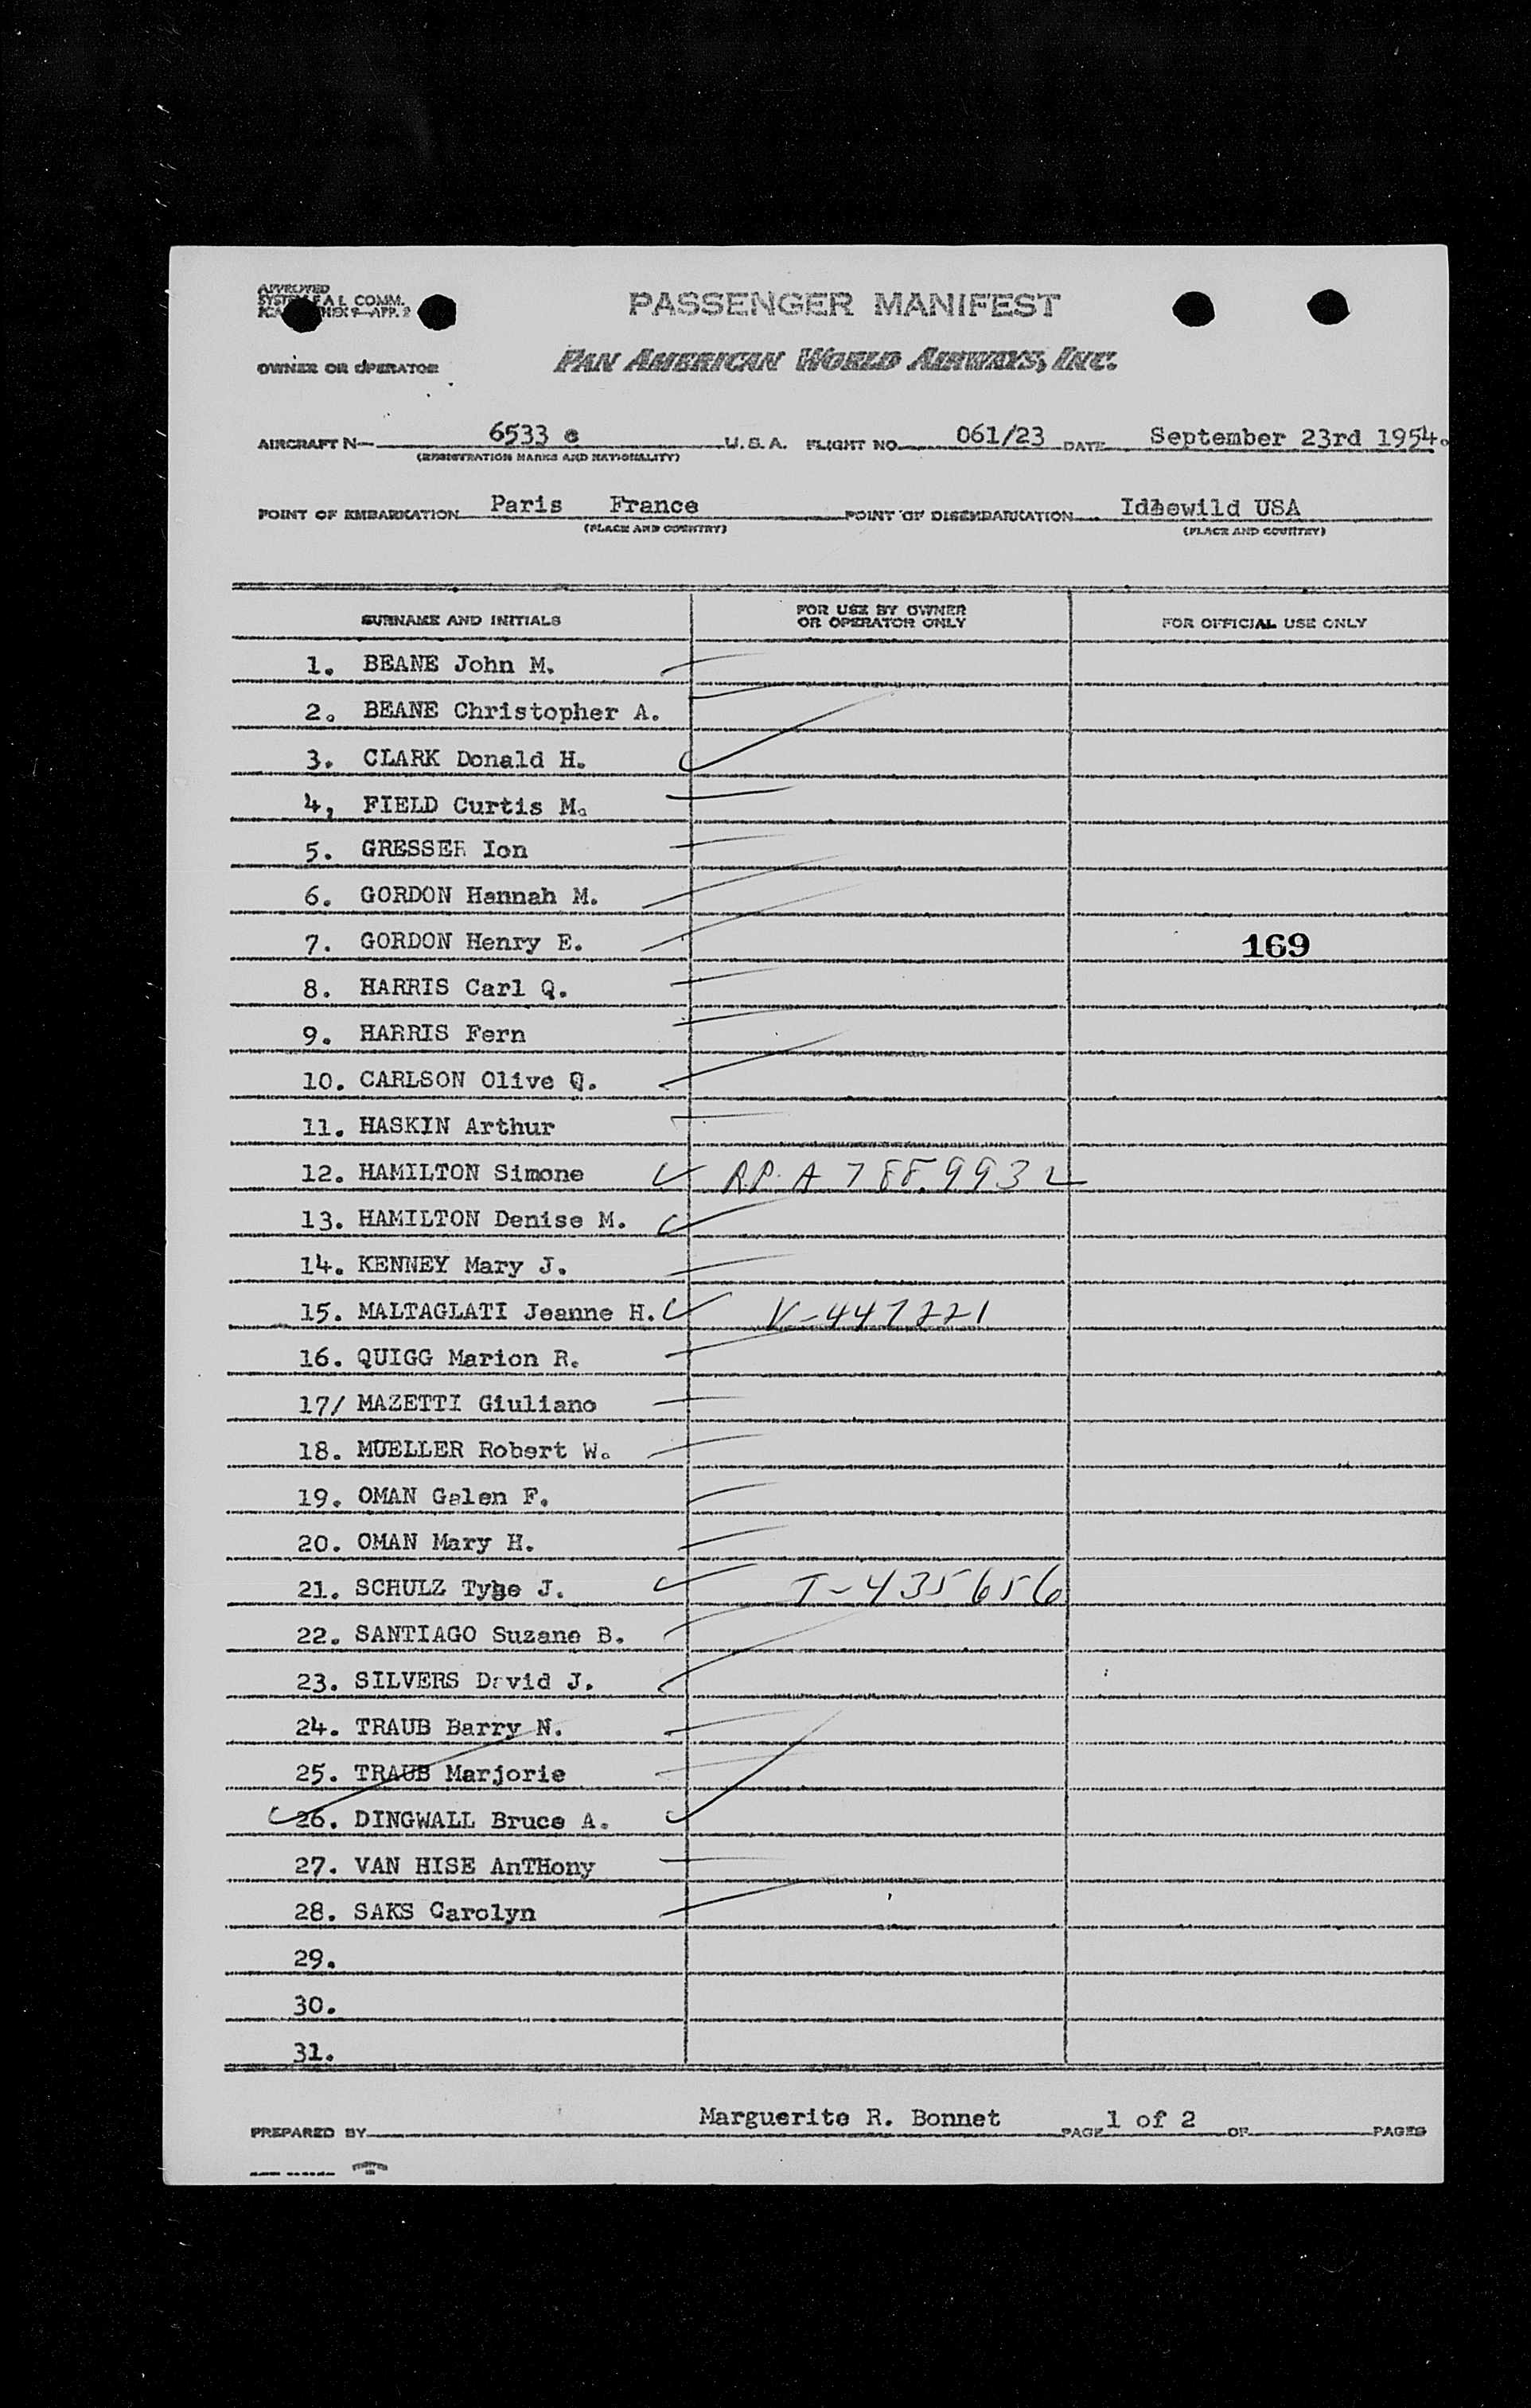 APPROVED
SYSTEM F A L COMM.
APP. 2
PASSENGER MANIFEST
OWNER OR OPERATOR
PAN AMERICAN WORLD AIRWAYS, INC.
AIRCRAFT N— 6533 c U. S. A. FLIGHT NO. 061/23 DATE September 23rd 1954.
(REGISTRATION MARKS AND NATIONALITY)
POINT OF EMBARKATION Paris France POINT OF DISEMBARKATION Idhewild USA
(PLACE AND COUNTRY) (PLACE AND COUNTRY)
SURNAME AND INITIALS FOR USE BY OWNER OR OPERATOR ONLY FOR OFFICIAL USE ONLY
1. BEANE John M.
2. BEANE Christopher A.
3. CLARK Donald H.
4, FIELD Curtis M.
5. GRESSER Ion
6. GORDON Hannah M.
7. GORDON Henry E. 169
8. HARRIS Carl Q.
9. HARRIS Fern
10. CARLSON Olive Q.
11. HASKIN Arthur
12. HAMILTON Simone R.P. A 7889932
13. HAMILTON Denise M.
14. KENNEY Mary J.
15. MALTAGLATI Jeanne H. V-447221
16. QUIGG Marion R.
17/ MAZETTI Giuliano
18. MUELLER Robert W.
19. OMAN Galen F.
20. OMAN Mary H.
21. SCHULZ Tyge J. I-435656
22. SANTIAGO Suzane B.
23. SILVERS David J.
24. TRAUB Barry N.
25. TRAUB Marjorie
26. DINGWALL Bruce A.
27. VAN HISE AnTHony
28. SAKS Carolyn
29.
30.
31.
PREPARED BY Marguerite R. Bonnet PAGE 1 of 2 OF PAGES